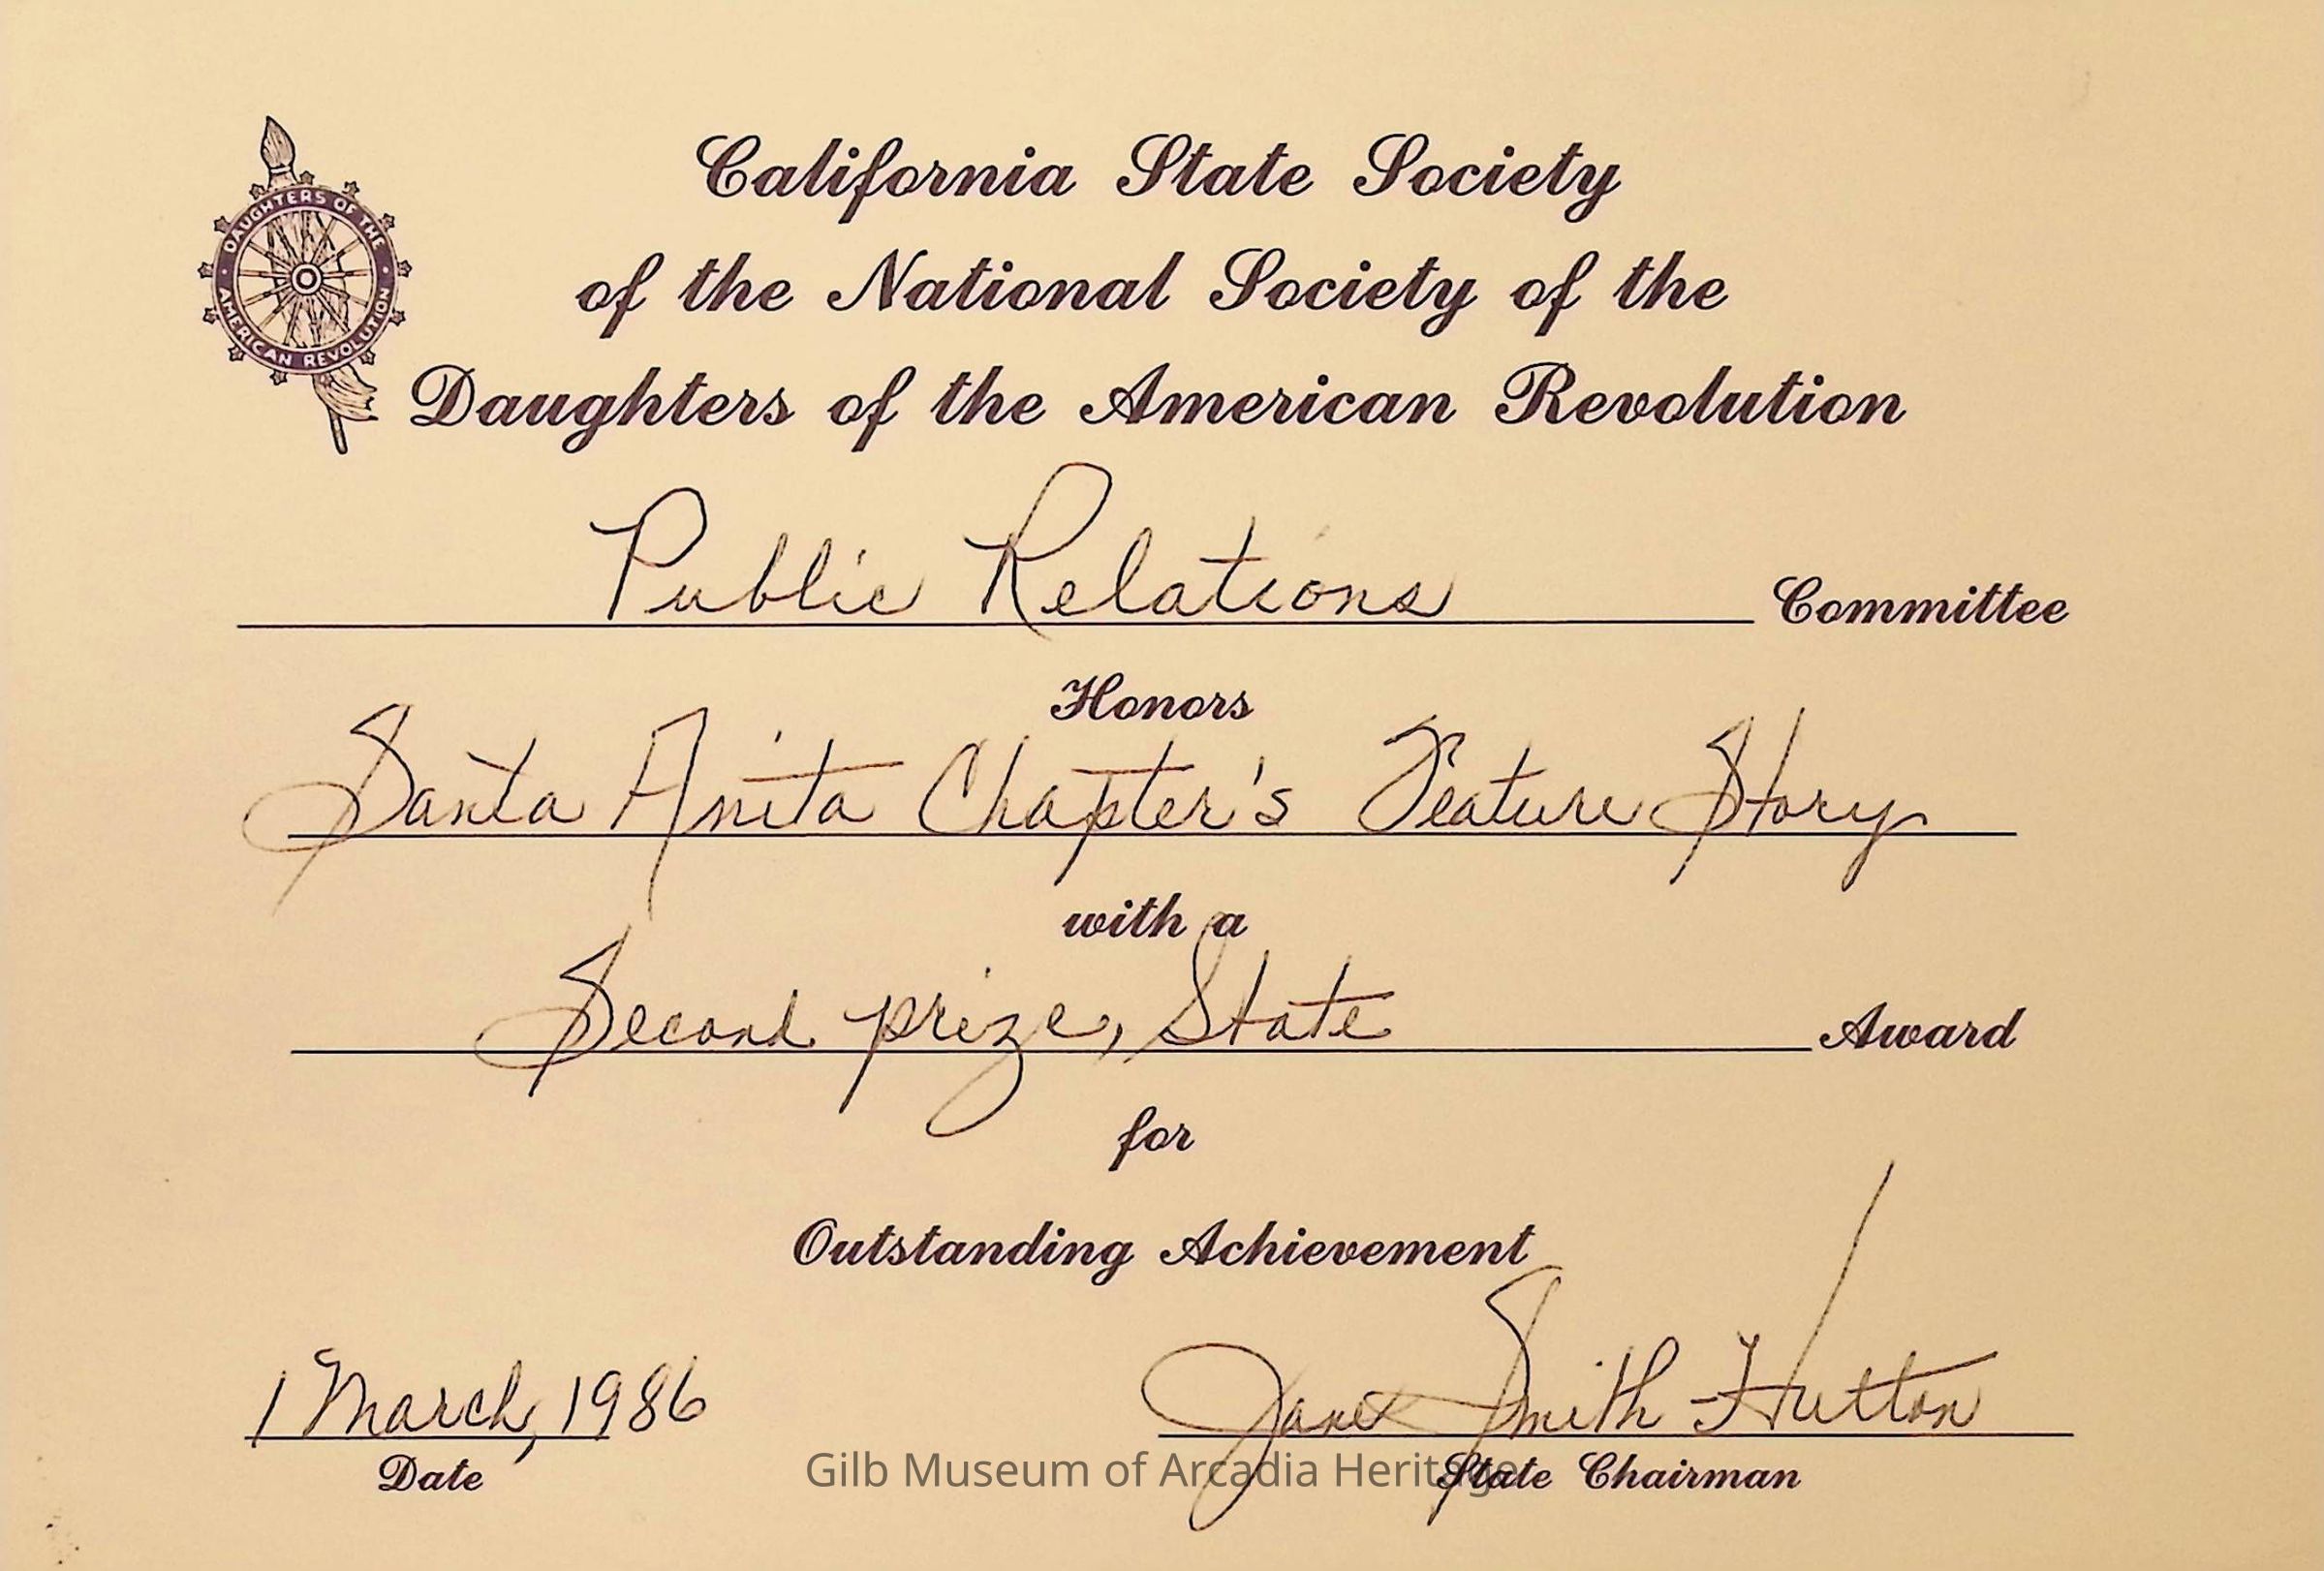 DAUGHTERS OF THE
AMERICAN REVOLUTION
California State Society
of the National Society of the
Daughters of the American Revolution
Public Relations Committee
Honors
Santa Anita Chapter's Feature Story
with a
Second prize, State Award
for
Outstanding Achievement
1 March, 1986
Jane Smith Hutton
Date
State Chairman
Gilb Museum of Arcadia Heritage